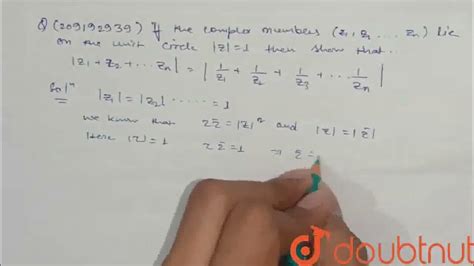 Q (209192939) If the complex numbers (z₁, z₂ ... zₙ) lie
on the unit circle |z|=1 then show that..
|z₁ + z₂ + ... zₙ| = | 1/z₁ + 1/z₂ + 1/z₃ + ... 1/zₙ |
Solⁿ |z₁| = |z₂| ...... = 1
we know that z z̄ = |z|² and |z| = |z̄|
Here |z| = 1 z z̄ = 1 ⇒ z̄ =
doubtnut